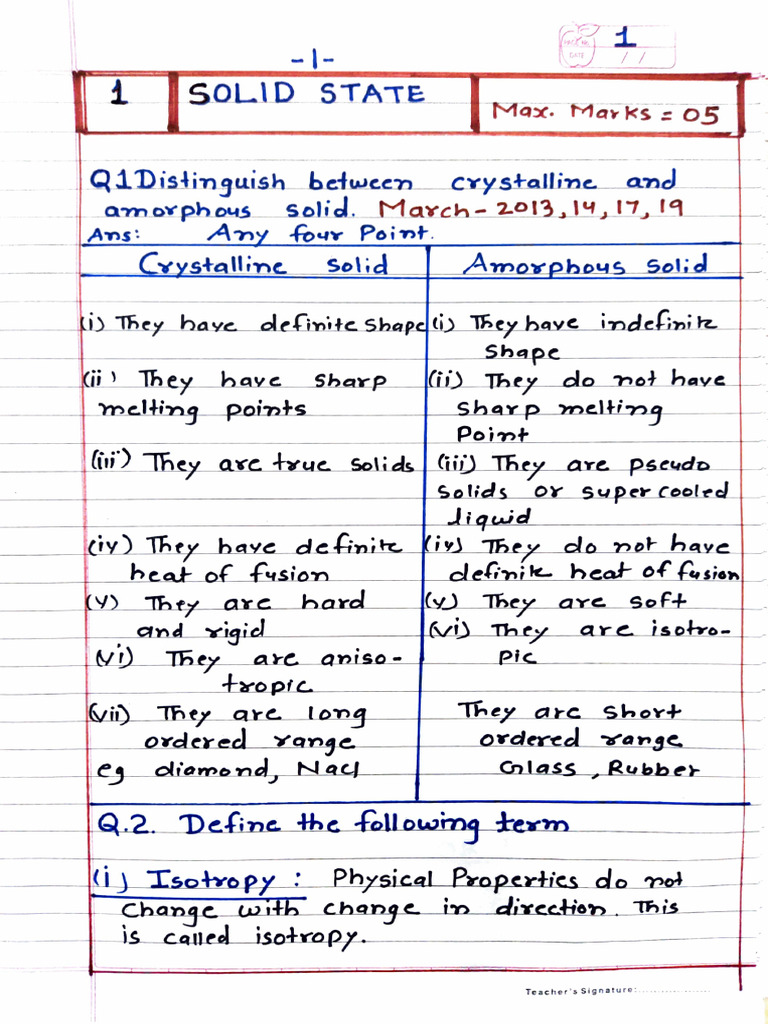 1
-1-
1 SOLID STATE Max. Marks = 05
Q1 Distinguish between crystalline and
amorphous solid. March-2013,14,17,19
Ans: Any four Point.
Crystalline solid Amorphous solid
(i) They have definite shape (i) They have indefinite
shape
(ii) They have sharp (ii) They do not have
melting points sharp melting
Point
(iii) They are true solids (iii) They are pseudo
solids or super cooled
liquid
(iv) They have definite (iv) They do not have
heat of fusion definite heat of fusion
(v) They are hard (v) They are soft
and rigid (vi) They are isotro-
(vi) They are aniso- pic
tropic
(vii) They are long They are short
ordered range ordered range
eg diamond, Nacl Glass, Rubber
Q.2. Define the following term
(i) Isotropy : Physical Properties do not
change with change in direction. This
is called isotropy.
Teacher's Signature: